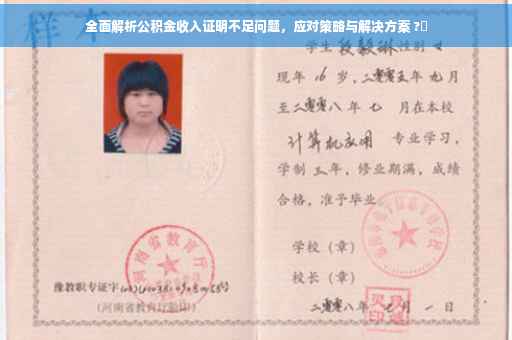 全面解析公积金收入证明不足问题，应对策略与解决方案 ?
样本
学生段毅琳性别女
现年16岁,二零零五年九月
至二零零八年七月在本校
计算机应用 专业学习,
学制三年,修业期满,成绩
合格,准予毕业
学校（章）
校长（章）
河南省教育厅
豫教职专证字
(河南省教育厅验印)
二零零八年 月一日